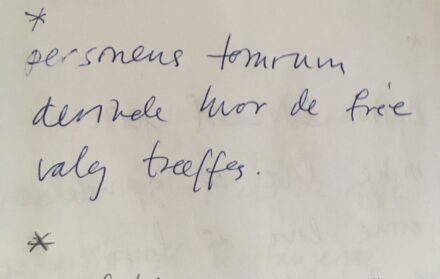 *
personens tomrum
derinde hvor de frie
valg træffes.
*